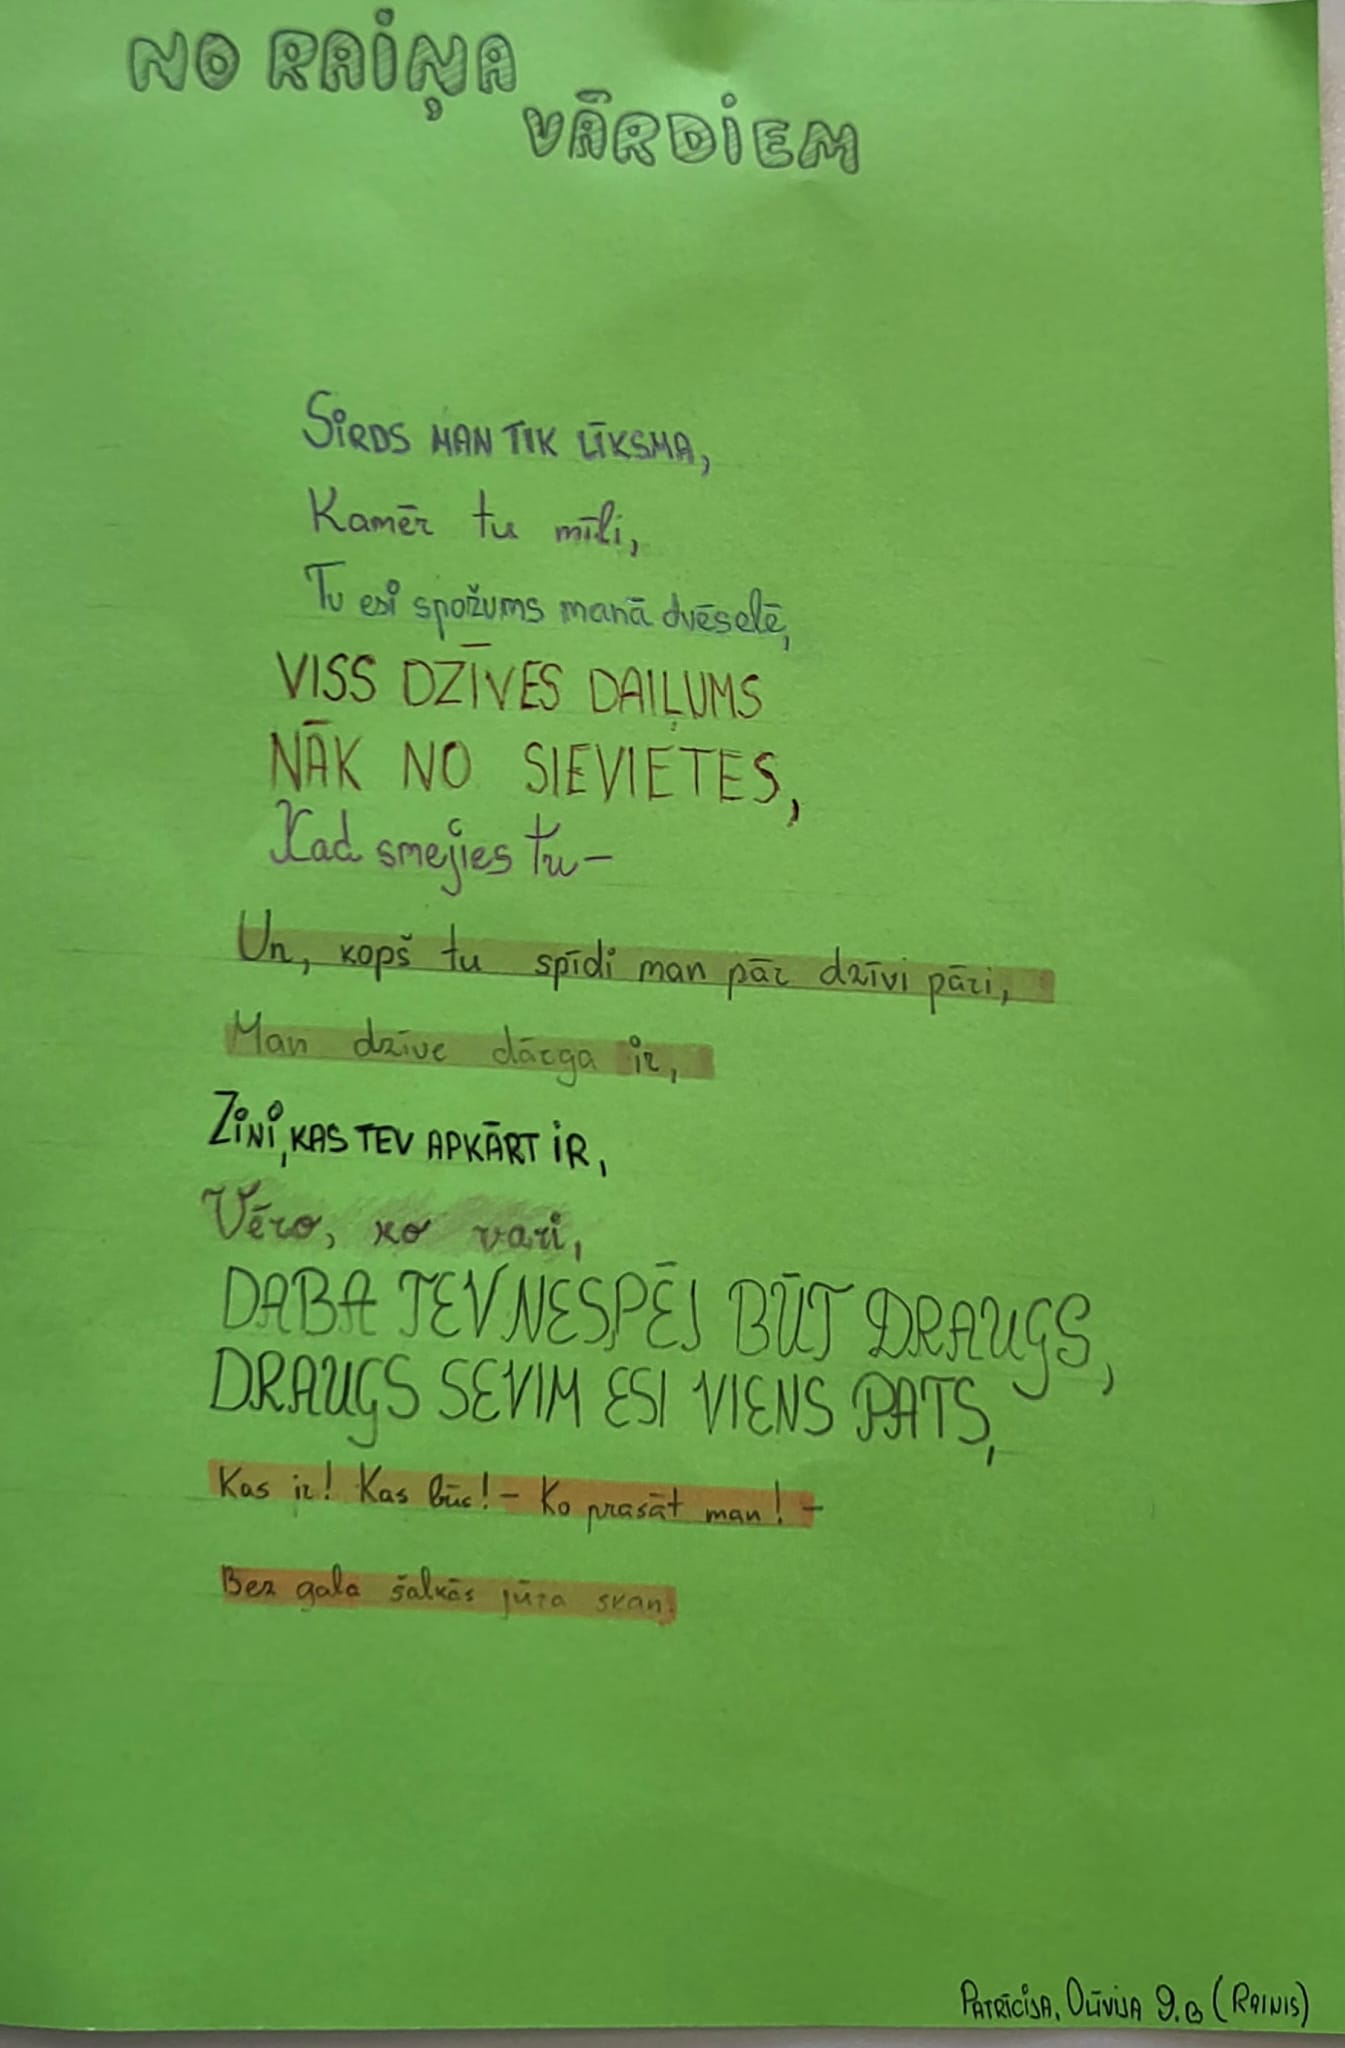 NO RAIŅA
VĀRDIEM
SIRDS MAN TIK LĪKSMA,
Kamēr tu mīli,
Tu esi spožums manā dvēselē,
VISS DZĪVES DAIĻUMS
NĀK NO SIEVIETES,
Kad smejies tu-
Un, kopš tu spīdi man pār dzīvi pāri,
Man dzīve dārga ir,
ZINI, KAS TEV APKĀRT IR,
Vēro, ko vari,
DABA TEV NESPĒJ BŪT DRAUGS,
DRAUGS SEVIM ESI VIENS PATS,
Kas ir! Kas būs! - Ko prasāt man! -
Bez gala šalkās jūra skan.
PATRĪCIJA, OLĪVIJA 9.B (RAINIS)